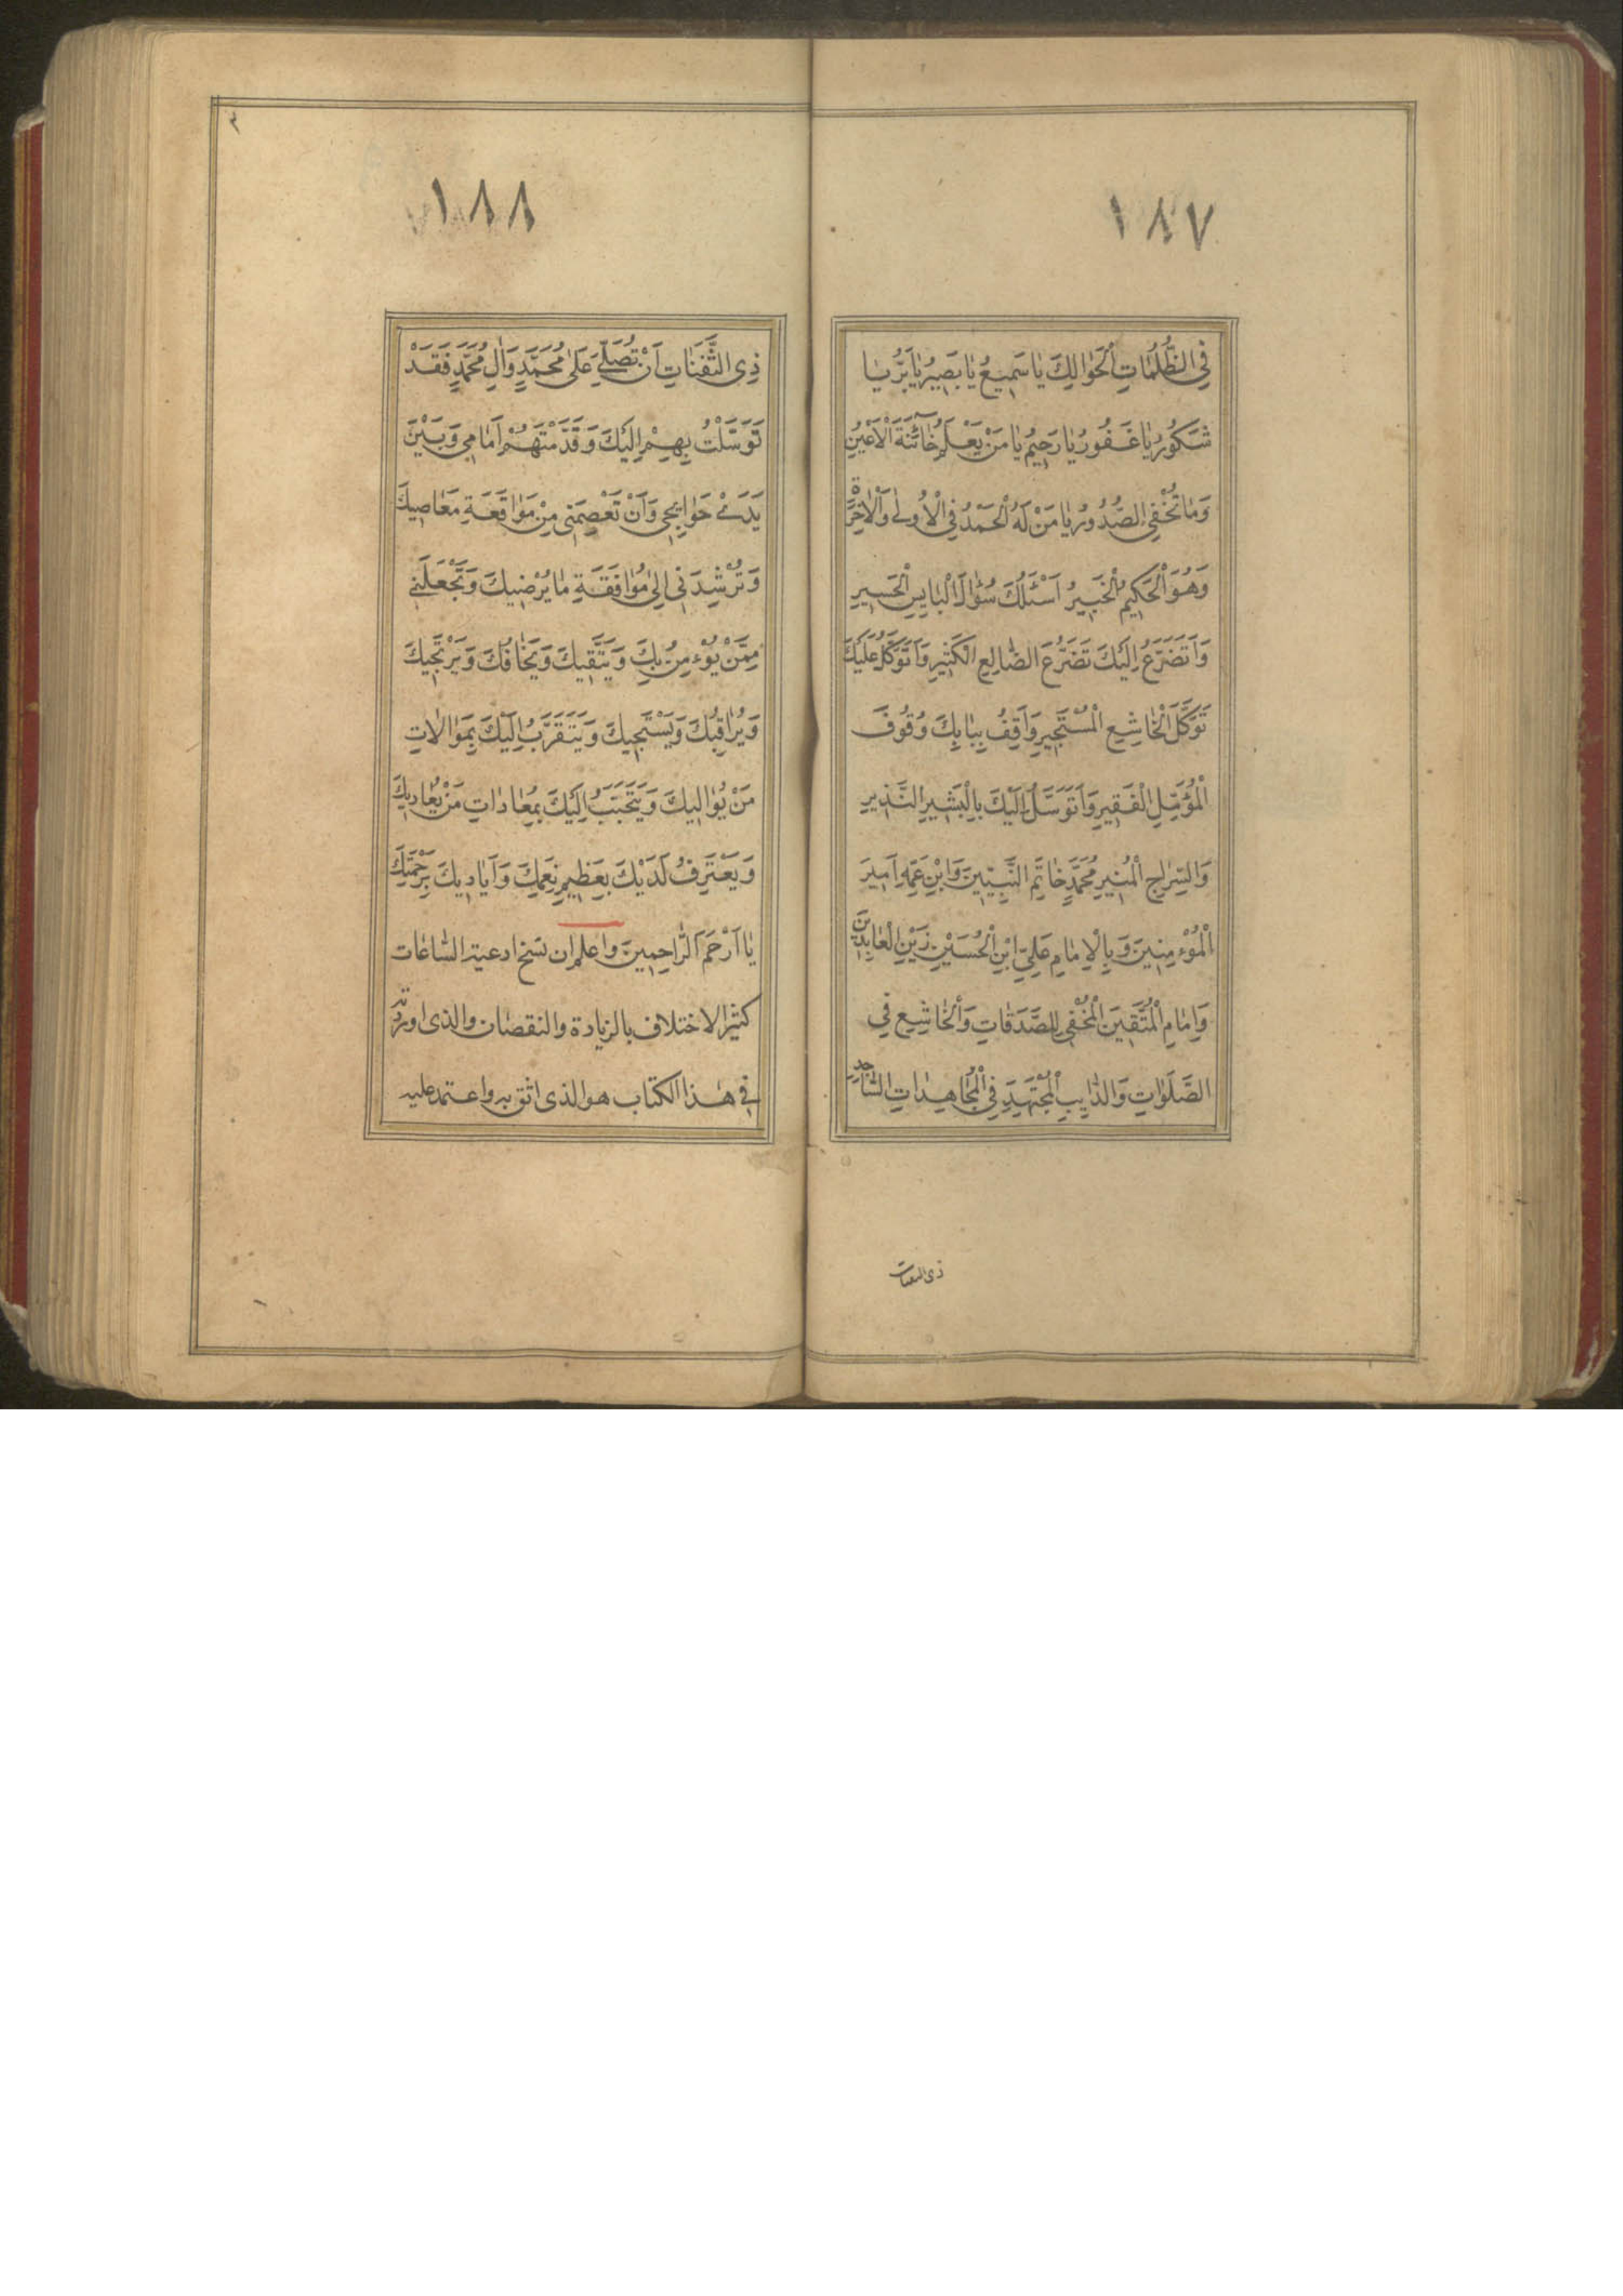 ١٨٧
فِي الظُّلُمَاتِ الْحَوَالِكَ يَا سَمِيعُ يَا بَصِيرُ يَا بَرُّ يَا
شَكُورُ يَا غَفُورُ يَا رَحِيمُ يَا مَنْ يَعْلَمُ خَائِنَةَ الْأَعْيُنِ
وَمَا تُخْفِي الصُّدُورُ يَا مَنْ لَهُ الْحَمْدُ فِي الْأُولَى وَالْآخِرَةِ
وَهُوَ الْحَكِيمُ الْخَبِيرُ اَسْئَلُكَ سُؤَالَ الْبَايِسِ الْحَسِيرِ
وَاَتَضَرَّعُ اِلَيْكَ تَضَرُّعَ الضَّالِعِ الْكَثِيرِ وَاَتَوَكَّلُ عَلَيْكَ
تَوَكُّلَ الْخَاشِعِ الْمُسْتَجِيرِ وَاَقِفُ بِبَابِكَ وُقُوفَ
الْمُؤَمِّلِ الْفَقِيرِ وَاَتَوَسَّلُ اِلَيْكَ بِالْبَشِيرِ النَّذِيرِ
وَالسِّرَاجِ الْمُنِيرِ مُحَمَّدٍ خَاتَمِ النَّبِيِّينَ وَابْنِ عَمِّهِ اَمِيرَ
الْمُؤْمِنِينَ وَبِالْاِمَامِ عَلِيِّ ابْنِ الْحُسَيْنِ زَيْنِ الْعَابِدِينَ
وَاِمَامِ الْمُتَّقِينَ الْمُخْفِي لِلصَّدَقَاتِ وَالْخَاشِعِ فِي
الصَّلَوَاتِ وَالدَّايِبِ الْمُجْتَهِدِ فِي الْمُجَاهِدَاتِ السَّاجِدِ
ذى الثفنات
١٨٨
ذِى الثَّفَنَاتِ اَنْ تُصَلِّيَ عَلَى مُحَمَّدٍ وَالِ مُحَمَّدٍ فَقَدْ
تَوَسَّلْتُ بِهِمْ اِلَيْكَ وَقَدَّمْتَهُمْ اَمَامِي وَبَيْنَ
يَدَيْ حَوَايِجِي وَاَنْ تَعْصِمَنِي مِنْ مَوَاقَعَةِ مَعَاصِيكَ
وَتُرْشِدَنِي اِلَى مُوَافَقَةِ مَا يُرْضِيكَ وَتَجْعَلَنِي
مِمَّنْ يُؤْمِنُ بِكَ وَيَتَّقِيكَ وَيَخَافُكَ وَيَرْتَجِيكَ
وَيُرَاقِبُكَ وَيَسْتَحِيكَ وَيَتَقَرَّبُ اِلَيْكَ بِمَوَالَاتِ
مَنْ يُوَالِيكَ وَيَتَحَبَّبُ اِلَيْكَ بِمُعَادَاتِ مَنْ يُعَادِيكَ
وَيَعْتَرِفُ لَدَيْكَ بِعَظِيمِ نِعَمِكَ وَاَيَادِيكَ بِرَحْمَتِكَ
يَا اَرْحَمَ الرَّاحِمِينَ واعلم ان نسخ ادعية الساعات
كثير الاختلاف بالزيادة والنقصان والذى اوردته
في هذا الكتاب هو الذى اثق به واعتمد عليه